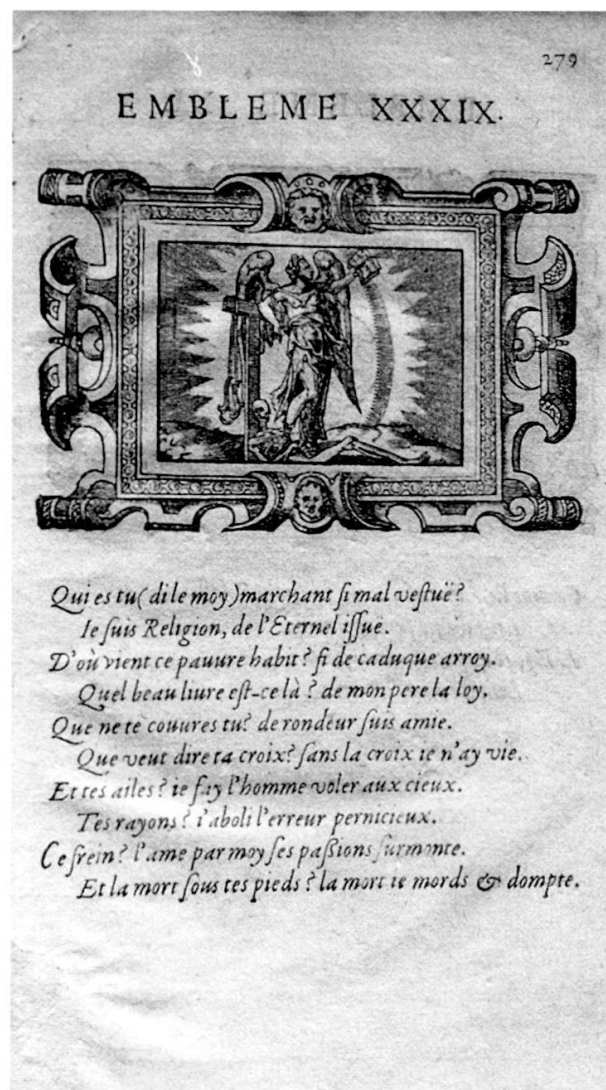 279
EMBLEME XXXIX.
Qui es tu (di le moy) marchant ſi mal veſtuë?
Ie ſuis Religion, de l'Eternel iſſue.
D'où vient ce pauure habit? fi de caduque arroy.
Quel beau liure eſt-ce là? de mon pere la loy.
Que ne te couures tu? de rondeur ſuis amie.
Que veut dire ta croix? ſans la croix ie n'ay vie.
Et tes ailes? ie fay l'homme voler aux cieux.
Tes rayons? i'aboli l'erreur pernicieux.
Ce frein? l'ame par moy ſes paßions ſurmonte.
Et la mort ſous tes pieds? la mort ie mords & dompte.